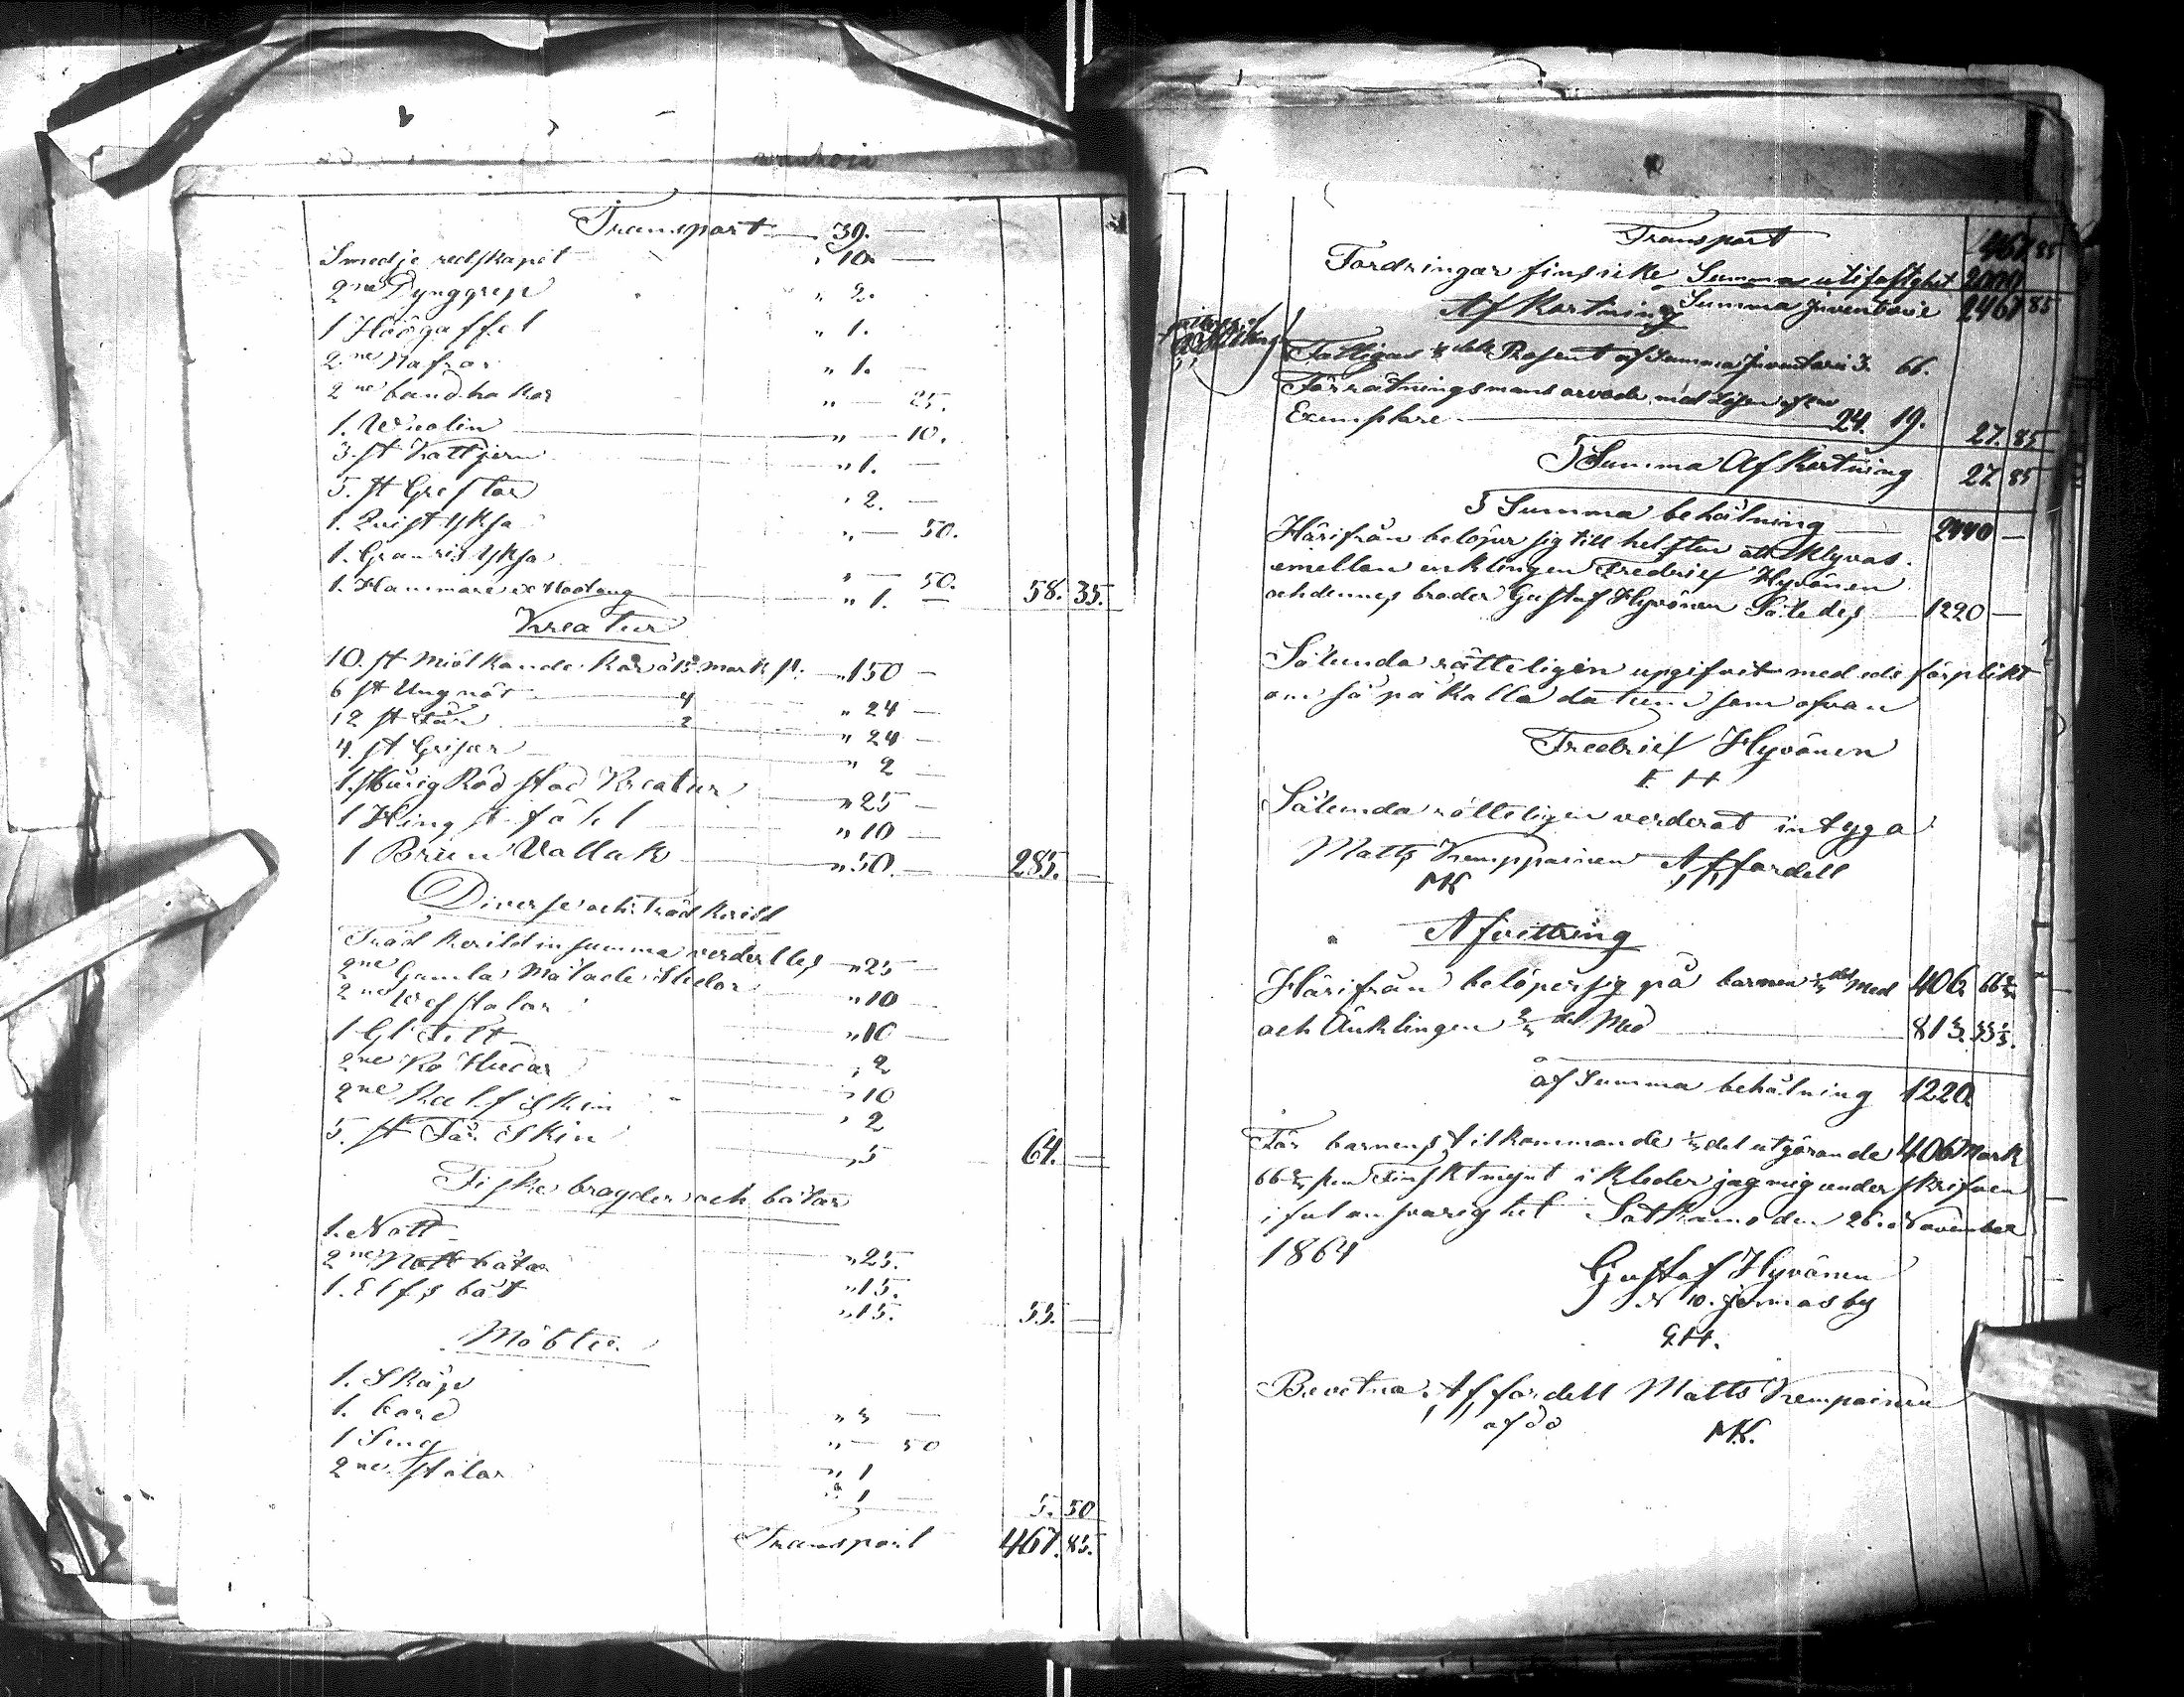 Transport 39. —
Smedje redskapet " 10. —
2ne Dynggrep " 2.
1 Höögaffel " 1.
2ne Nafrar " 1. —
2ne bandhakar " — 25.
1. Wiolin " — 10.
3. st Trattjern " 1. —
5. st Greftor " 2. —
1. Qvist Yksa " — 50.
1. Granris Yksa " — 50.
1. Hammare " 1. — 58. 35.
Kreatur
10. st Miölkande Kor à 15 mark st. " 150 —
6 st Ungnöt 4 " 24 —
12 st Får 2 " 24 —
4. st Grisar " 2 —
1. Röd Stod Kreatur " 25 —
1 Hingst fåhl " 10 —
1 Brun Vallak " 50. — 285. —
Diverse och Träd keríld
Träd keríld in summa verderades " 25 —
2ne Gamla Målade Slädor " 10 —
2ne Wefstolar " 10 —
1 Gl Tält " 2
2ne Ko Hudar " 10
2ne Kalfskin " 2
5. st Får Skin " 5 64. —
Fiske bragder och båtar
1. Nott " 25.
2ne Nott båtar " 15.
1. Elfs båt " 15. 55. —
Möbler
1. Skåp " 3 —
1. bord " — 50
1 Seng " 1
2ne Stolar " 1 — 5. 50
Transport 467. 85.
Transport 467 85
Fordringar fins icke Summa utifastighet 2000
Afkortning Summa Inventarie 2467 85
Fattigas 1/8 dels Prosent af Summa Inventarii 3. 66.
Förrätningsmans arvode med Lösen af 2ne
Exemplare 24. 19. 27. 85
Summa Afkortning 27 85
Summa behålning 2440 —
Härifrån belöper sig till helften att Klyvas
emellan enklingen Fredrik Hyvönen
och dennes broder Gustaf Hyvönen Således 1220 —
Sålunda rätteligen upgifvit med eds förplikt
om så påkalla datum som ofvan
Fredrik Hyvönen
F. H
Sålunda rätteligen verderat intyga
Matts Kemppainen A Affordell
MK
Afvittring
Härifrån belöper sig på barnen 1/3 del Med 406. 66 2/3
och Änklingen 2/3 del Med 813. 33 1/3.
af Summa behålning 1220.
För barnens tilkommande 1/3 del utgörande 406 Mark
66 2/3 pen Finskt mynt ikleder jag mig underskrifven
i ful ansvarighet Sotkamo den 26. November
1864
Gustaf Hyvönen
N 10. Jormasby
G.H.
Bevetna Affordell Matts Kempainen
MK.